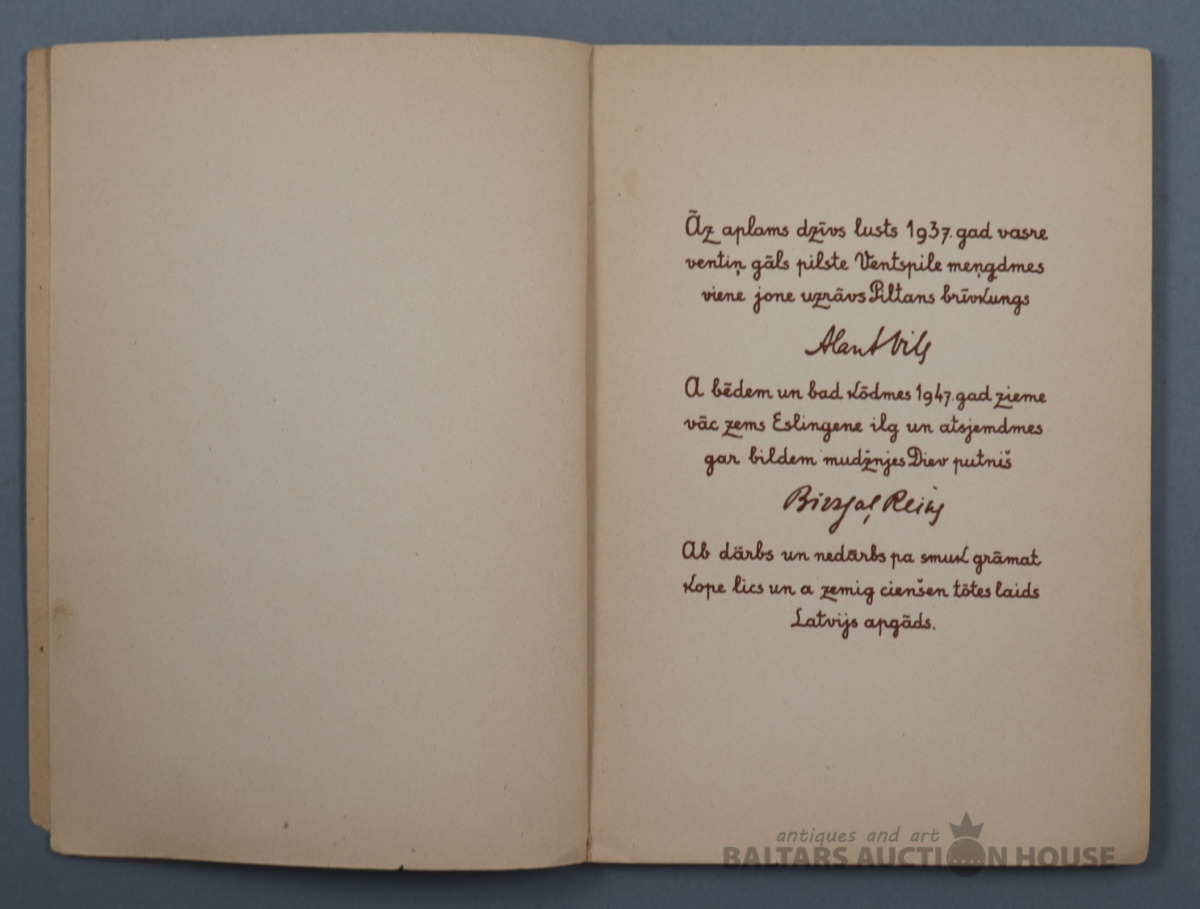 Āz aplams dzīvs lusts 1937. gad vasre
ventiņ gāls pilste Ventspile meņgdmes
viene jone uzrāvs Piltans brīvkungs
A bēdem un bad kōdmes 1947. gad zieme
vāc zems Eslingene ilg un atsjemdmes
gar bildem mudžnjes Diev putniš
Ab därbs un nedārbs pa smuk grāmat
kope lics un a zemig cienšen tōtes laids
Latvijs apgāds.
antiques and art
BALTARS AUCTION HOUSE